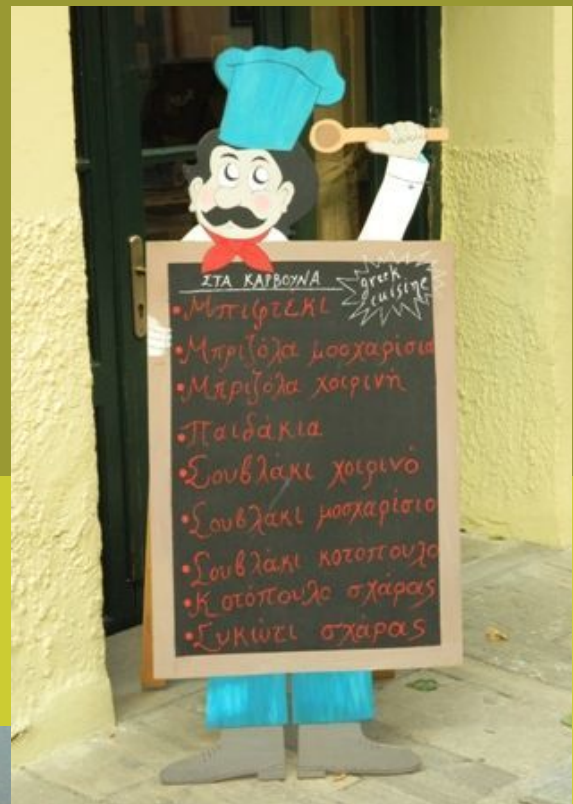 ΣΤΑ ΚΑΡΒΟΥΝΑ
greek
cuisine
•Μπιφτεκι
•Μπριζόλα μοσχαρίσια
•Μπριζόλα χοιρινή
•Παιδάκια
•Σουβλάκι χοιρινό
•Σουβλάκι μοσχαρίσιο
•Σουβλάκι κοτοπουλο
•Κοτόπουλο σχάρας
•Συκώτι σχάρας